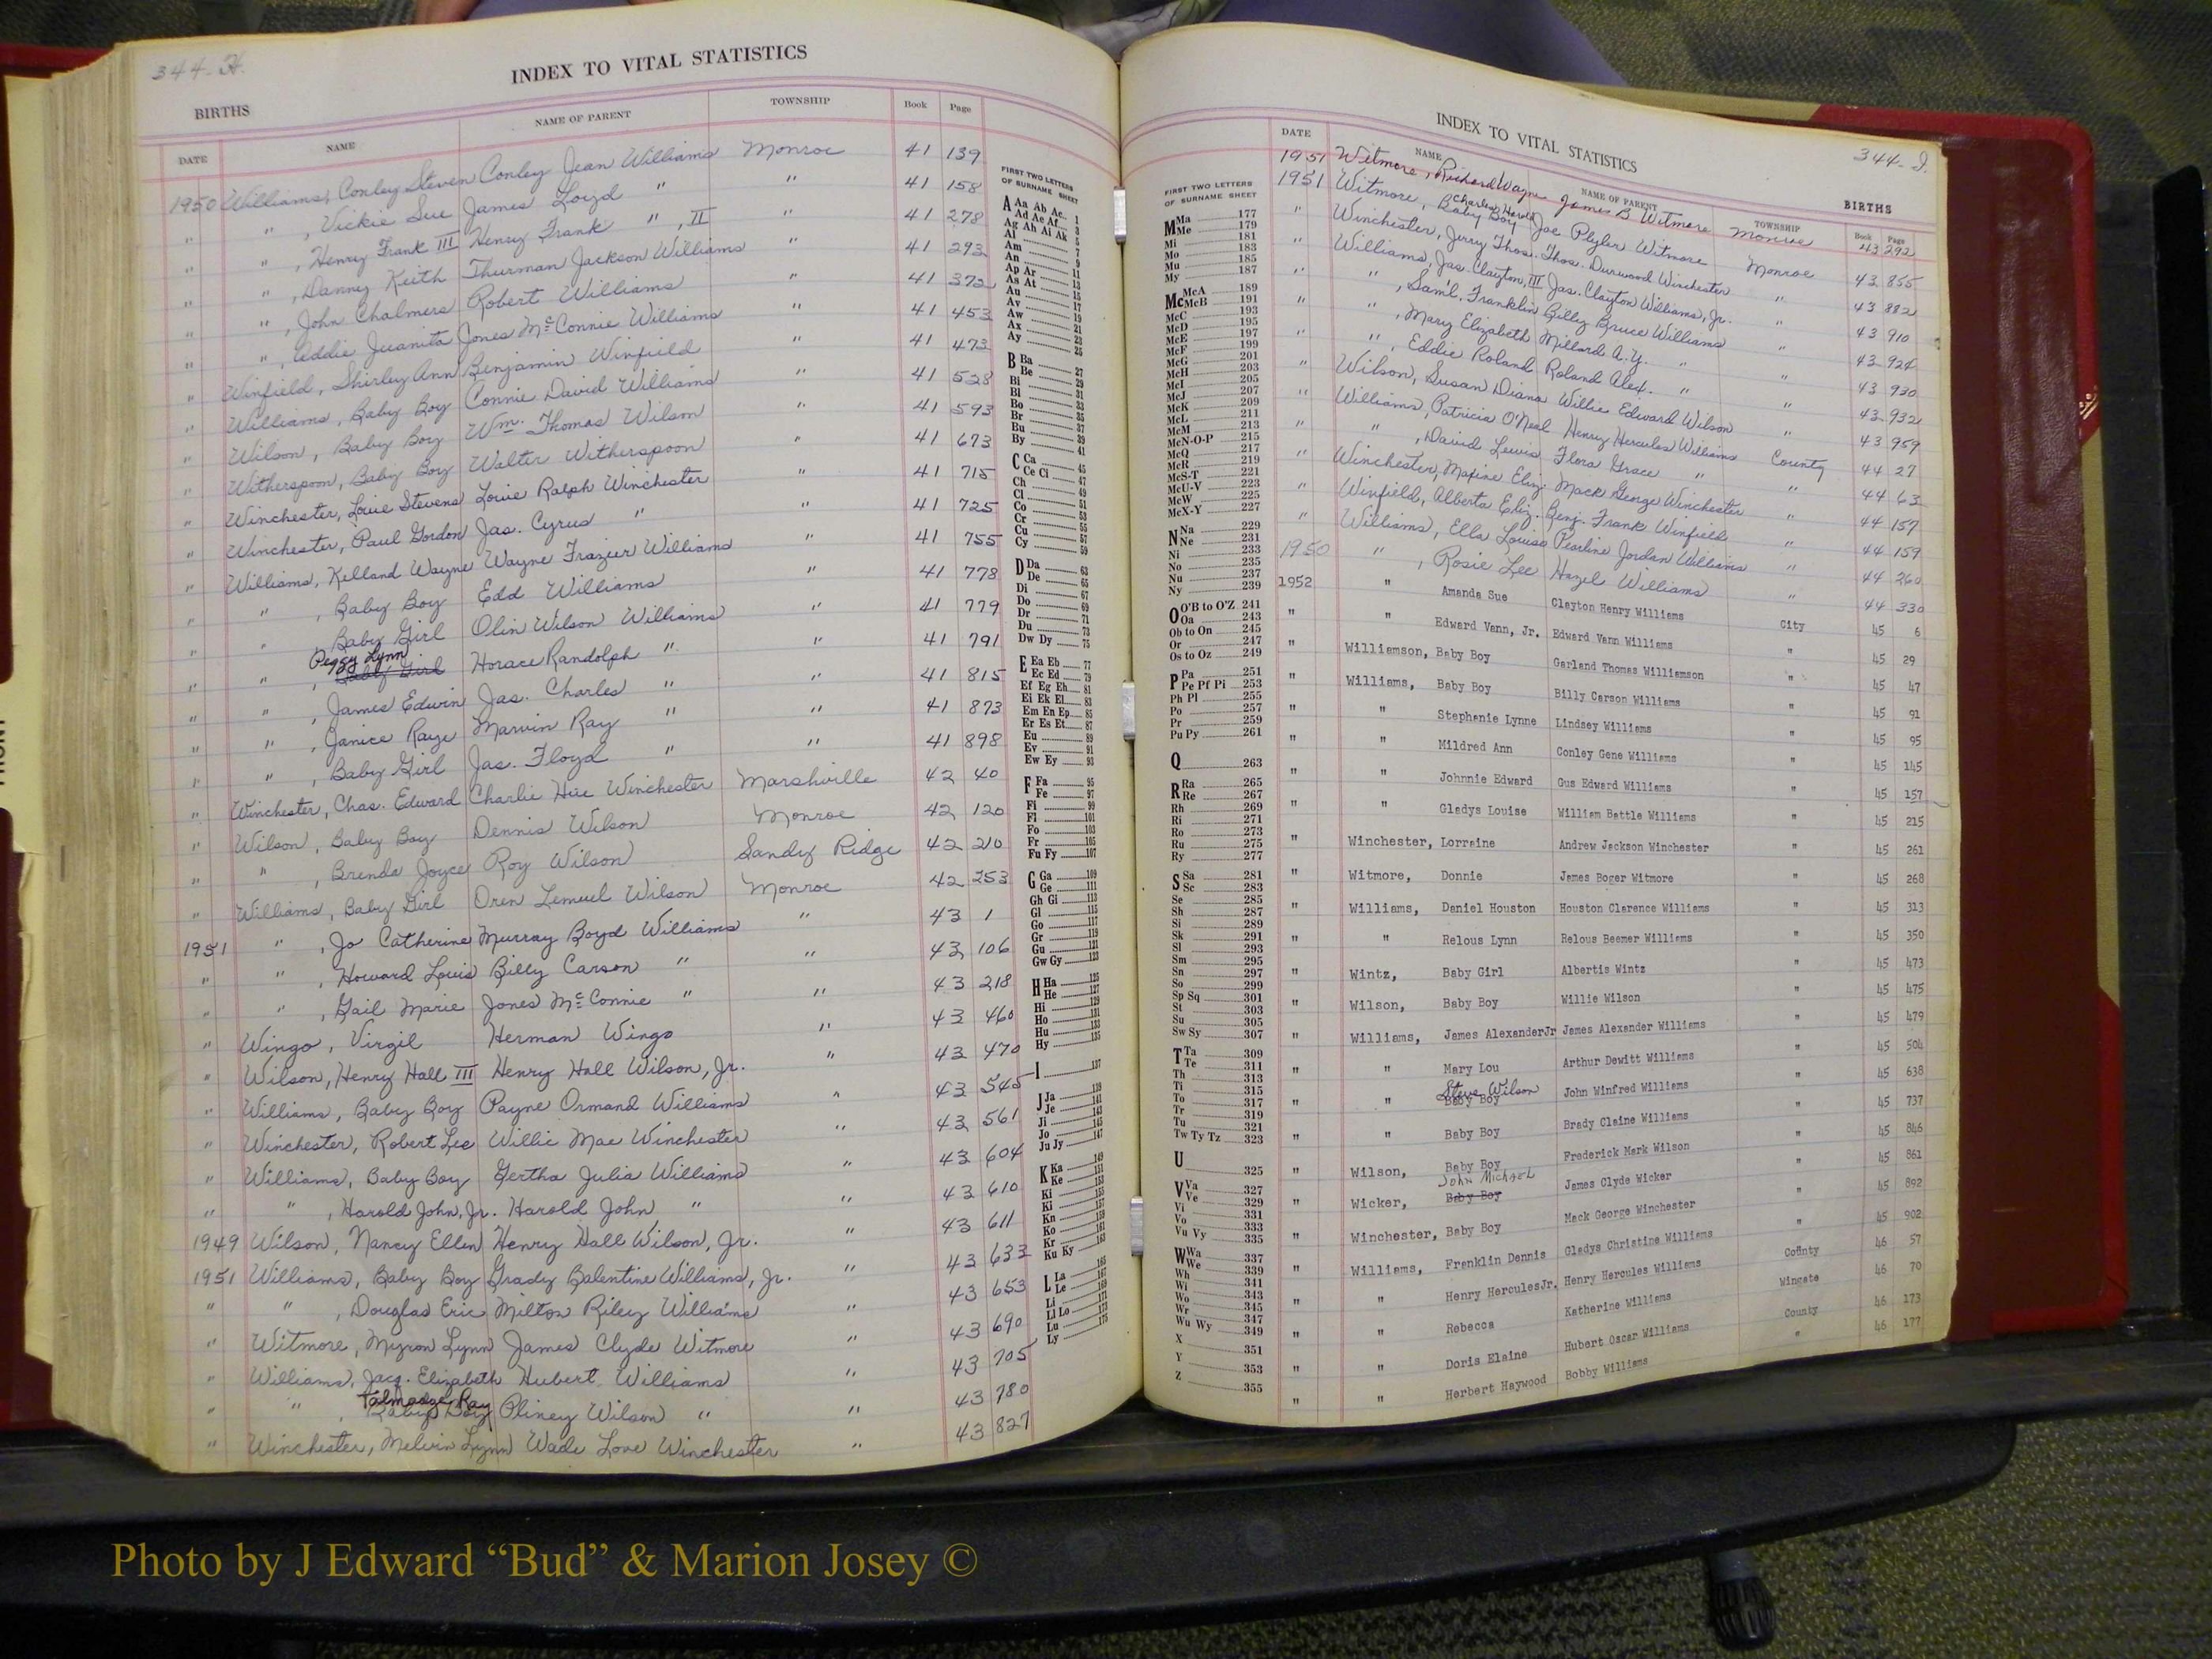 344-H.
INDEX TO VITAL STATISTICS
BIRTHS
DATE NAME NAME OF PARENT TOWNSHIP Book Page
1950 Williams, Conley Steven Conley Jean Williams Monroe 41 139
" " , Vickie Sue James Loyd " " 41 158
" " , Henry Frank III Henry Frank " , II " 41 278
" " , Danney Keith Thurman Jackson Williams " 41 293
" " , John Chalmers Robert Williams " 41 372
" " , Addie Juanita Jones McConnie Williams " 41 453
" Winfield, Shirley Ann Benjamin Winfield " 41 473
" Williams, Baby Boy Connie David Williams " 41 528
" Wilson, Baby Boy Wm. Thomas Wilson " 41 593
" Witherspoon, Baby Boy Walter Witherspoon " 41 673
" Winchester, Louie Stevens Louie Ralph Winchester " 41 715
" Winchester, Paul Gordon Jas. Cyrus " " 41 725
" Williams, Kelland Wayne Wayne Frazier Williams " 41 755
" " , Baby Boy Edd Williams " 41 778
" " Baby Girl Olin Wilson Williams " 41 779
" " , Peggy Lynn Baby Girl Horace Randolph " " 41 791
" " , James Edwin Jas. Charles " " 41 815
" " , Janice Raye Marvin Ray " " 41 873
" " , Baby Girl Jas. Floyd " " 41 898
" Winchester, Chas. Edward Charlie Winchester Marshville 42 40
" Wilson, Baby Boy Dennis Wilson Monroe 42 120
" " , Brenda Joyce Roy Wilson Sandy Ridge 42 210
" Williams, Baby Girl Oren Lemuel Wilson Monroe 42 253
1951 " , Jo Catherine Murray Boyd Williams " 43 1
" " , Howard Louis Billy Carson " " 43 106
" " , Gail Marie Jones McConnie " " 43 218
" Wingo, Virgil Herman Wingo " 43 460
" Wilson, Henry Hall III Henry Hall Wilson, Jr. " 43 470
" Williams, Baby Boy Payne Ormand Williams " 43 545
" Winchester, Robert Lee Willie Mae Winchester " 43 561
" Williams, Baby Boy Gertha Julia Williams " 43 604
" " , Harold John, Jr. Harold John " " 43 610
1949 Wilson, Nancy Ellen Henry Hall Wilson, Jr. " 43 611
1951 Williams, Baby Boy Grady Balentine Williams, Jr. " 43 633
" " , Douglas Eric Milton Riley Williams " 43 653
" Witmore, Myron Lynn James Clyde Witmore " 43 690
" Williams, Jacq. Elizabeth Hubert Williams " 43 705
" " , Talmadge Ray Baby Boy Pliney Wilson " " 43 780
" Winchester, Melvin Lynn Wade Love Winchester " 43 827
FIRST TWO LETTERS
OF SURNAME SHEET
A Aa Ab Ac 1
Ad Ae Af 3
Ag Ah Ai Ak 5
Al 7
Am 9
An 11
Ap Ar 13
As At 15
Au 17
Av 19
Aw 21
Ax 23
Ay 25
B Ba 27
Be 29
Bi 31
Bl 33
Bo 35
Br 37
Bu 39
By 41
C Ca 45
Ce Ci 47
Ch 49
Cl 51
Co 53
Cr 55
Cu 57
Cy 59
D Da 63
De 65
Di 67
Do 69
Dr 71
Du 73
Dw Dy 75
E Ea Eb 77
Ec Ed 79
Ef Eg Eh 81
Ei Ek El 83
Em En Ep 85
Er Es Et 87
Eu 89
Ev 91
Ew Ey 93
F Fa 95
Fe 97
Fi 99
Fl 101
Fo 103
Fr 105
Fu Fy 107
G Ga 109
Ge 111
Gh Gi 113
Gl 115
Go 117
Gr 119
Gu 121
Gw Gy 123
H Ha 125
He 127
Hi 129
Ho 131
Hu 133
Hy 135
I 137
J Ja 139
Je 141
Ji 143
Jo 145
Ju Jy 147
K Ka 149
Ke 151
Ki 153
Kl 155
Kn 157
Ko 159
Kr 161
Ku Ky 163
L La 165
Le 167
Li 169
Ll Lo 171
Lu 173
Ly 175
INDEX TO VITAL STATISTICS
344-I.
BIRTHS
DATE NAME NAME OF PARENT TOWNSHIP Book Page
1951 Witmore, Richard Wayne James B Witmore Monroe 43 292
1951 Witmore, Charles Harold Baby Boy Joe Plyler Witmore Monroe 43 855
" Winchester, Jerry Thos. Thos. Durwood Winchester " 43 882
" Williams, Jas. Clayton, III Jas. Clayton Williams, Jr. " 43 910
" " , Sam'l. Franklin Billy Bruce Williams " 43 924
" " , Mary Elizabeth Millard A.Y. " " 43 930
" " , Eddie Roland Roland Alex. " " 43 932
" Wilson, Susan Diana Willie Edward Wilson " 43 959
" Williams, Patricia O'Neal Henry Hercules Williams County 44 27
" " , David Lewis Flora Grace " " 44 63
" Winchester, Maxine Eliz. Mack George Winchester " 44 157
" Winfield, Alberta Eliz. Benj. Frank Winfield " 44 159
" Williams, Ella Louise Pearline Jordan Williams " 44 260
1950 " , Rosie Lee Hazel Williams " 44 330
1952 " Amanda Sue Clayton Henry Williams City 45 6
" " Edward Vann, Jr. Edward Vann Williams " 45 29
" Williamson, Baby Boy Garland Thomas Williamson " 45 47
" Williams, Baby Boy Billy Carson Williams " 45 91
" " Stephanie Lynne Lindsey Williams " 45 95
" " Mildred Ann Conley Gene Williams " 45 145
" " Johnnie Edward Gus Edward Williams " 45 157
" " Gladys Louise William Battle Williams " 45 215
" Winchester, Lorraine Andrew Jackson Winchester " 45 261
" Witmore, Donnie James Boger Witmore " 45 268
" Williams, Daniel Houston Houston Clarence Williams " 45 313
" " Relous Lynn Relous Beemer Williams " 45 350
" Wintz, Baby Girl Albertis Wintz " 45 473
" Wilson, Baby Boy Willie Wilson " 45 475
" Williams, James AlexanderJr James Alexander Williams " 45 479
" " Mary Lou Arthur Dewitt Williams " 45 504
" " Steve Wilson Baby Boy John Winfred Williams " 45 638
" " Baby Boy Brady Claine Williams " 45 737
" Wilson, Baby Boy Frederick Mark Wilson " 45 846
" Wicker, John Michael Baby Boy James Clyde Wicker " 45 861
" Winchester, Baby Boy Mack George Winchester " 45 892
" Williams, Franklin Dennis Gladys Christine Williams " 45 902
" " Henry HerculesJr. Henry Hercules Williams County 46 57
" " Rebecca Katherine Williams Wingate 46 70
" " Doris Elaine Hubert Oscar Williams County 46 173
" " Herbert Haywood Bobby Williams " 46 177
FIRST TWO LETTERS
OF SURNAME SHEET
M Ma 177
Me 179
Mi 181
Mo 183
Mu 185
My 187
Mc McA 189
McB 191
McC 193
McD 195
McE 197
McF 199
McG 201
McH 203
McI 205
McJ 207
McK 209
McL 211
McM 213
McN-O-P 215
McQ 217
McR 219
McS-T 221
McU-V 223
McW 225
McX-Y 227
N Na 229
Ne 231
Ni 233
No 235
Nu 237
Ny 239
O O'B to O'Z 241
Oa 243
Ob to On 245
Or 247
Os to Oz 249
P Pa 251
Pe Pf Pi 253
Ph Pl 255
Po 257
Pr 259
Pu Py 261
Q 263
R Ra 265
Re 267
Rh 269
Ri 271
Ro 273
Ru 275
Ry 277
S Sa 281
Sc 283
Se 285
Sh 287
Si 289
Sk 291
Sl 293
Sm 295
Sn 297
So 299
Sp Sq 301
St 303
Su 305
Sw Sy 307
T Ta 309
Te 311
Th 313
Ti 315
To 317
Tr 319
Tu 321
Tw Ty Tz 323
U 325
V Va 327
Ve 329
Vi 331
Vo 333
Vu Vy 335
W Wa 337
We 339
Wh 341
Wi 343
Wo 345
Wr 347
Wu Wy 349
X 351
Y 353
Z 355
Photo by J Edward “Bud” & Marion Josey ©